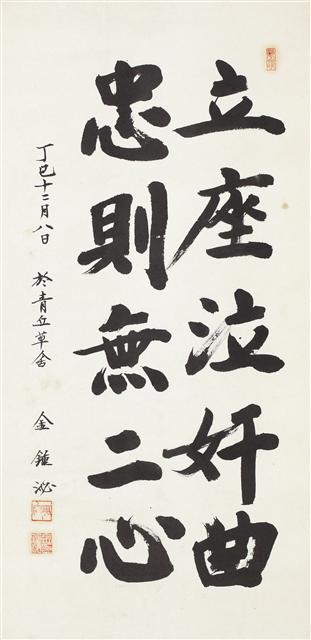 立座泣奸曲
忠則無二心
丁巳十二月八日 於青丘草舍 金鍾泌